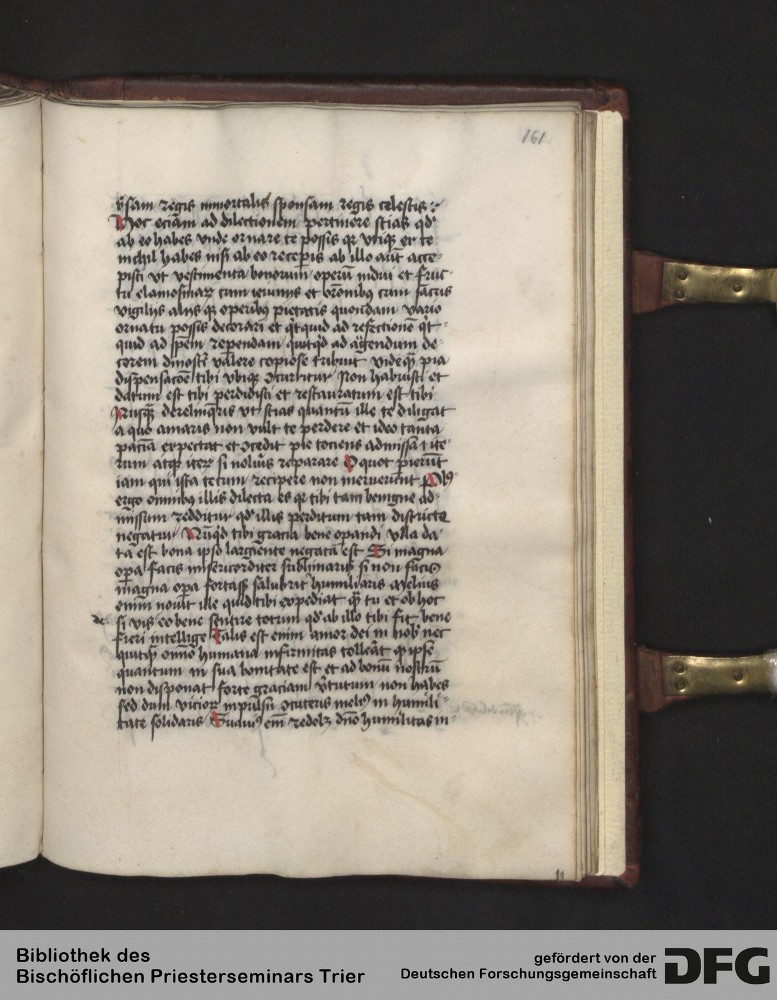 161
v͛sam regis inmortalis sponsam regis celestis :
Hoc eciam ad dilectionem pertinere scias qd'
ab eo habes vnde ornare te possis qꝛ vtiqꝫ ex te
nichil habes nisi ab eo recepis ab illo aūt acce-
pisti vt vestimenta bonorum operū indui et fruc-
tu elamosinaꝝ cum ieiuniis et or̄onibus cum sacris
vigiliis aliis qꝫ operibꝰ pietatis quondam vario
ornatu possis decorari et q̇tquid ad refectionē q̇t-
quid ad spem rependam quitqd ad agendum de-
corem valere copiose tribuit vide qͣ pia
dispensacōe tibi vbiqꝫ occurritur Non habuisti et
datum est tibi perdidisti et restauratum est tibi
Nusqͣ derelinq̄ris vt scias quantū ille te diligat
a quo amaris non vult te perdere et ideo tanta
paciā expectat et ꝯcedit pie tociens admissa ite-
rum atqꝫ iteꝝ si nolūs reparare O quot perierūt
iam qui ista tecum recipere non meruerunt
ergo omnibus illis dilecta es qꝛ tibi tam benigne ad-
missum redditur qd' illis perditum tam districte
negatur Nūqd tibi gracia bene opandi vlla da-
ta est bona ipso largiente negata est Si magna
opa facis misericorditer sublimaris si non facis
magna opa fortassꝭ salubrit̄ humiliaris Melius
enim nouit ille quid tibi expediat qͣ tu et ob hoc
de si vis eo bene sentire totum qd' ab illo tibi fit bene
fieri intellige Talis est enim amor dei in nob' nec
quitqͣ om̄o humana infirmitas tolleāt qͥ ipse
quantum in sua bonitate est et ad bonū nostrū
non disponat forte graciam v͛tutum non habes
sed dum vicioꝝ inpulsu ꝯcuteris meliꝰ in humili-
tate solidaris Suauiꝰ em̄ redolꝫ dn̄o humilitas in-
Bibliothek des
Bischöflichen Priesterseminars Trier
gefördert von der
Deutschen Forschungsgemeinschaft
DFG